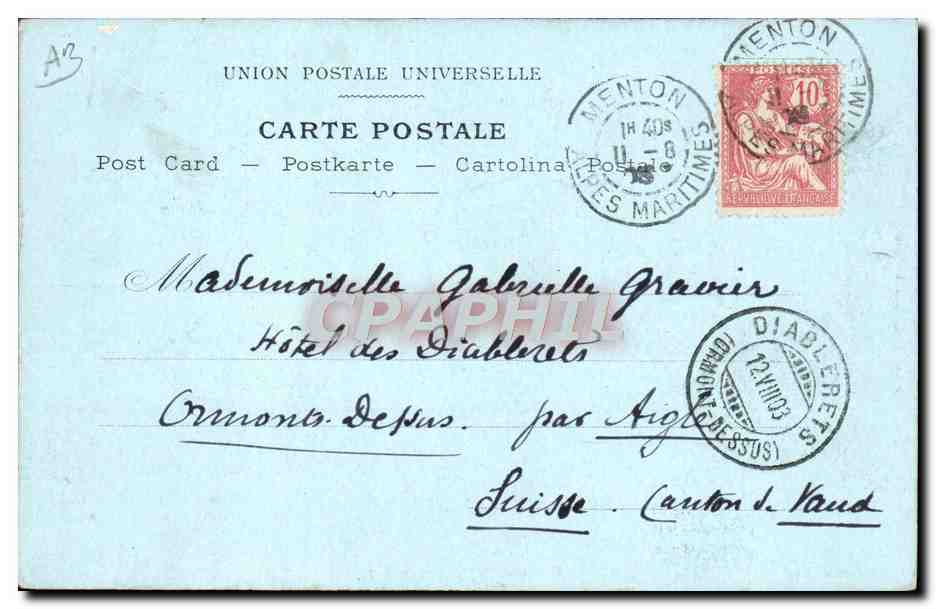 A3
UNION POSTALE UNIVERSELLE
CARTE POSTALE
Post Card — Postkarte — Cartolina Postale
MENTON
1H 40S
11 - 8
03
ALPES MARITIMES
MENTON
ALPES MARITIMES
POSTES
10
REPUBLIQUE FRANÇAISE
Mademoiselle Gabrielle Gravier
CPARAPHIL
Hôtel des Diablerets
Ormonts-Dessus. par Aigle
Suisse. Canton de Vaud
DIABLERETS
12.VIII.03
(ORMONT-DESSUS)